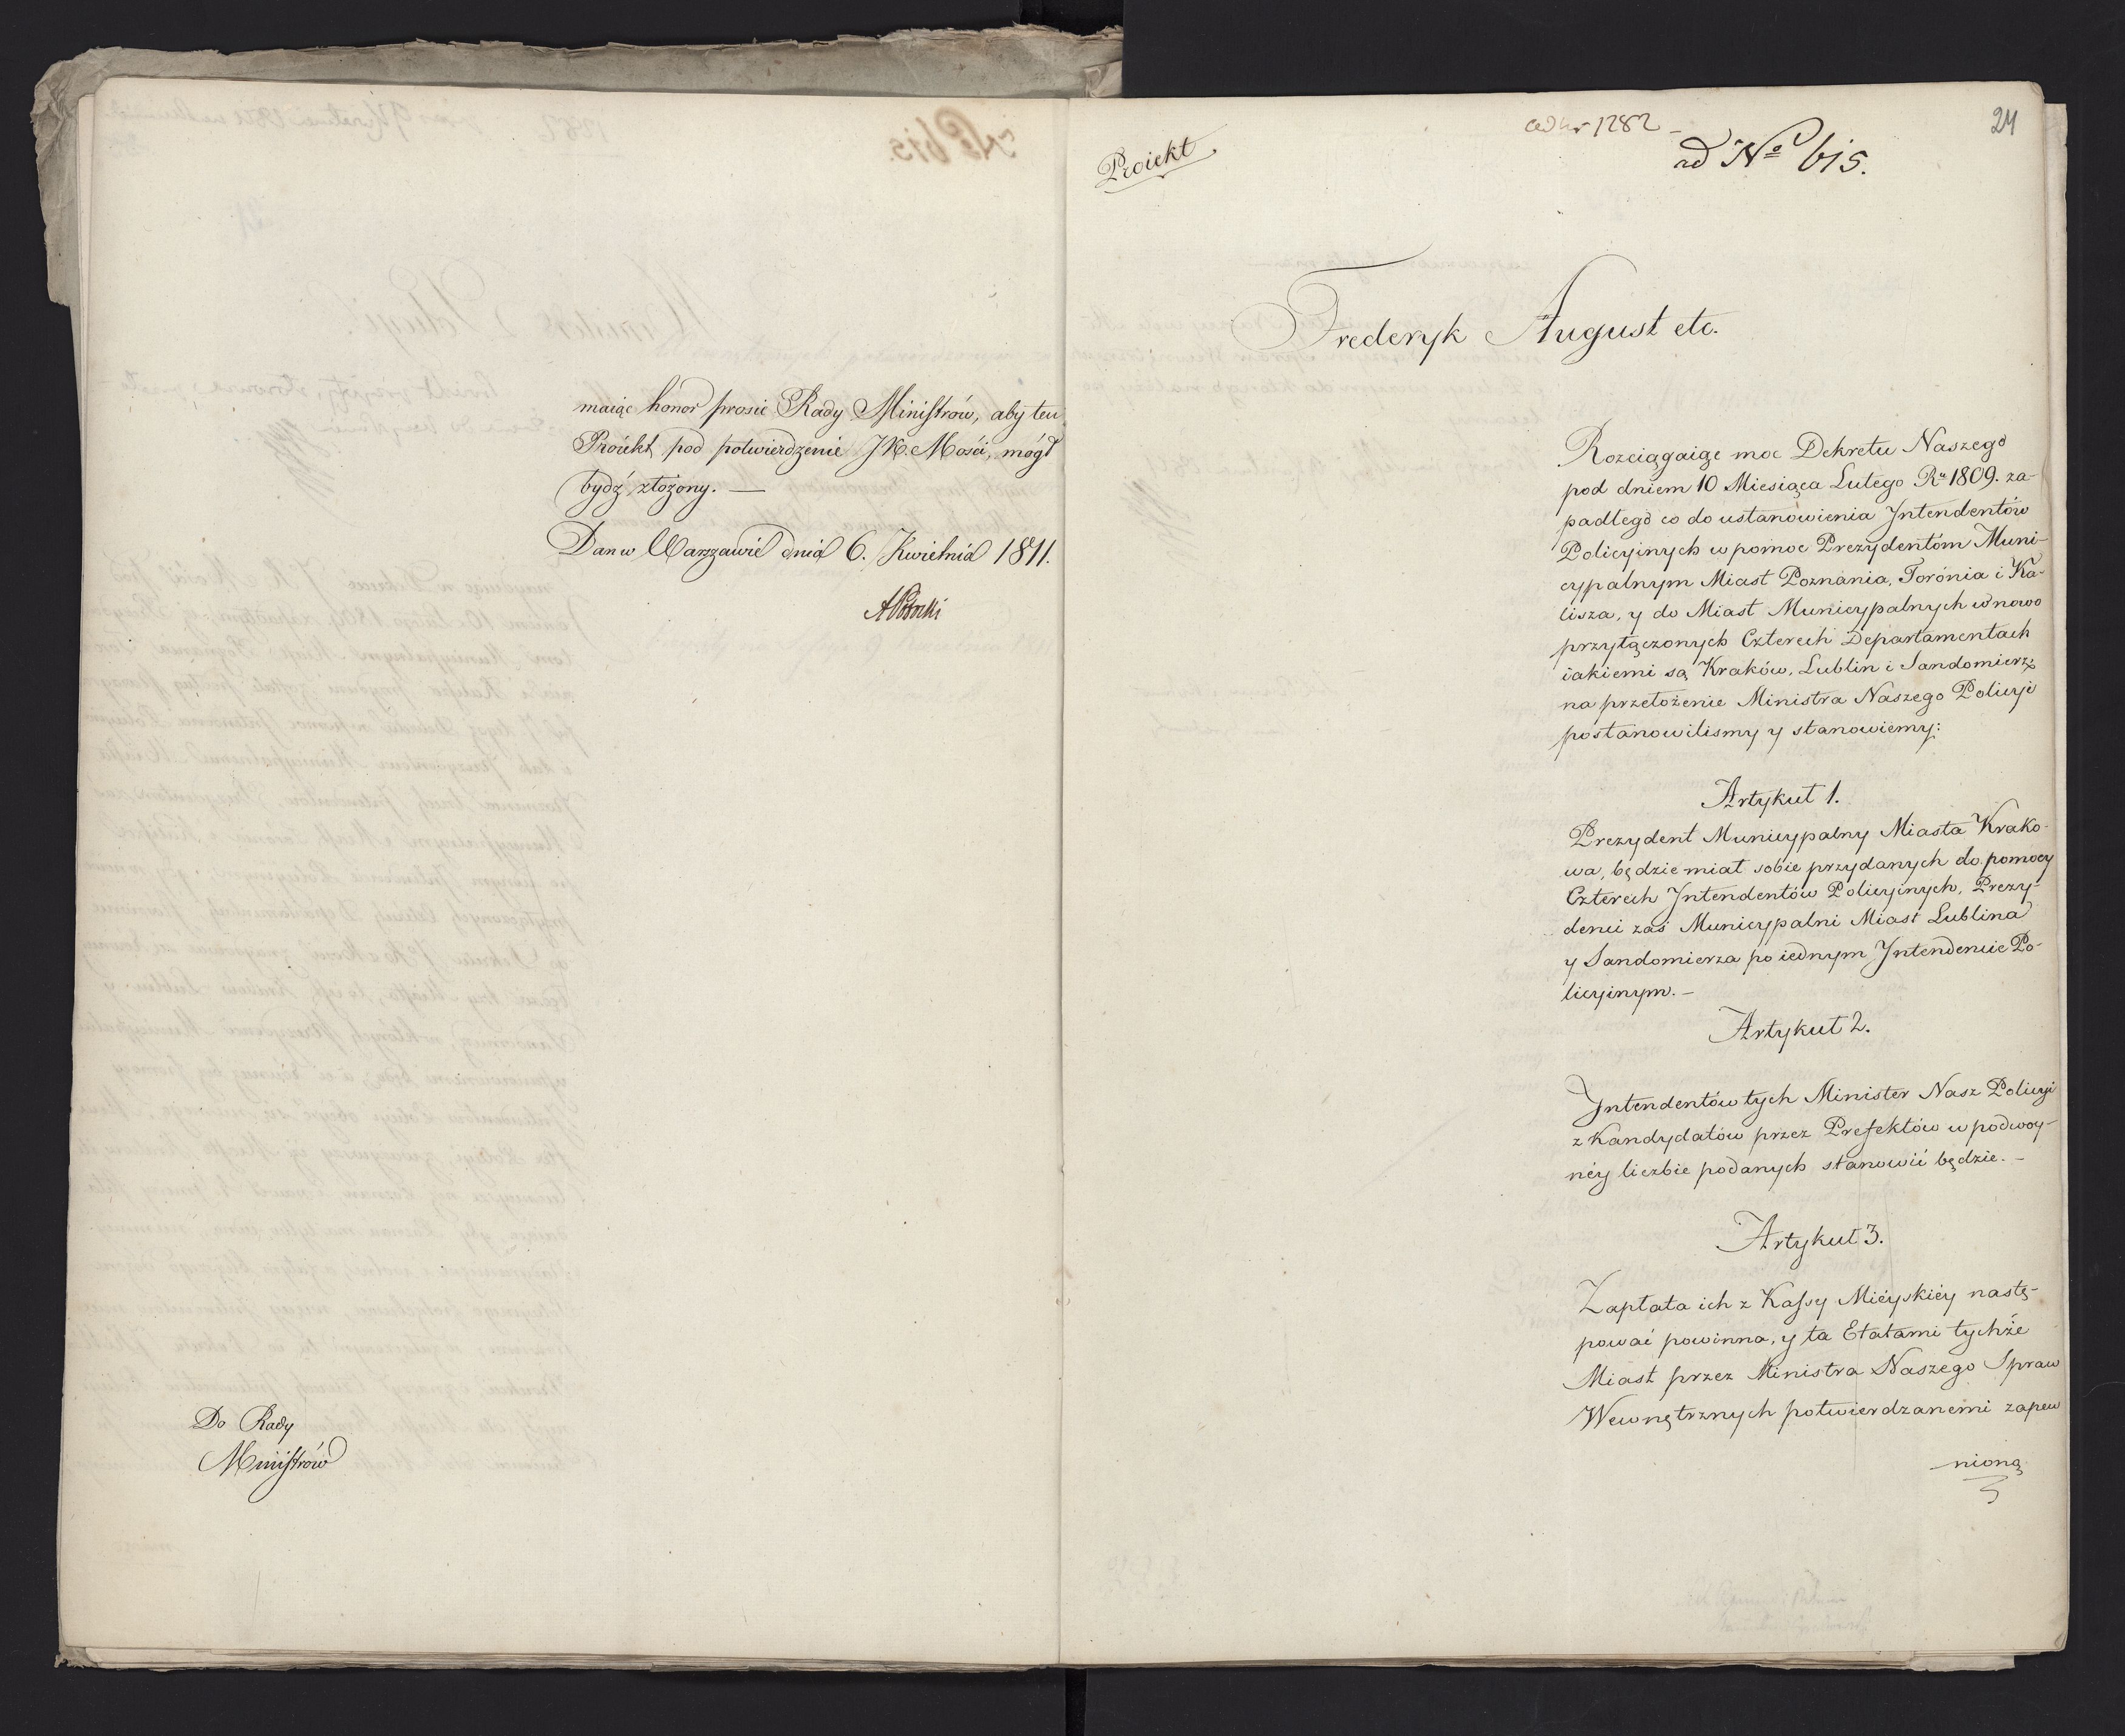 maiąc honor prosic Rady Ministrów, aby ten
Proiekt pod potwierdzenie JK. Mości, mógł
bydź złożony. —
Dan w Warszawie dnia 6. Kwietnia 1811.
APotocki
Do Rady
Ministrów
Proiekt
ad Nr 1282
24
ad No 615.
Frederyk August etc.
Rozciągaiąc moc Dekretu Naszego
pod dniem 10 Miesiąca Lutego Ru 1809. za-
padłego co do ustanowienia Jntendentów
Policyinych w pomoc Prezydentóm Muni-
cypalnym Miast Poznania, Torónia i Ka-
lisza, y do Miast Municypalnych w nowo
przyłączonych Czterech Departamentach
iakiemi są Kraków, Lublin i Sandomierz,
na przełożenie Ministra Naszego Policyi
postanowilismy y stanowiemy:
Artykuł 1.
Prezydent Municypalny Miasta Krako-
wa, będzie miał sobie przydanych do pomocy
Czterech Jntendentów Policyinych, Prezy-
denci zaś Municypalni Miast Lublina
y Sandomierza po iednym Jntendencie Po-
licyinym. —
Artykuł 2.
Jntendentów tych Minister Nasz Policyi
z Kandydatów przez Prefektów w podwoy-
néy liczbie podanych stanowić będzie. —
Artykuł 3.
Zapłata ich z Kassy Mieyskiey nastę-
pować powinna, y ta Etatami tychże
Miast przez Ministra Naszego Spraw
Wewnętrznych potwierdzanemi zapew
nioną